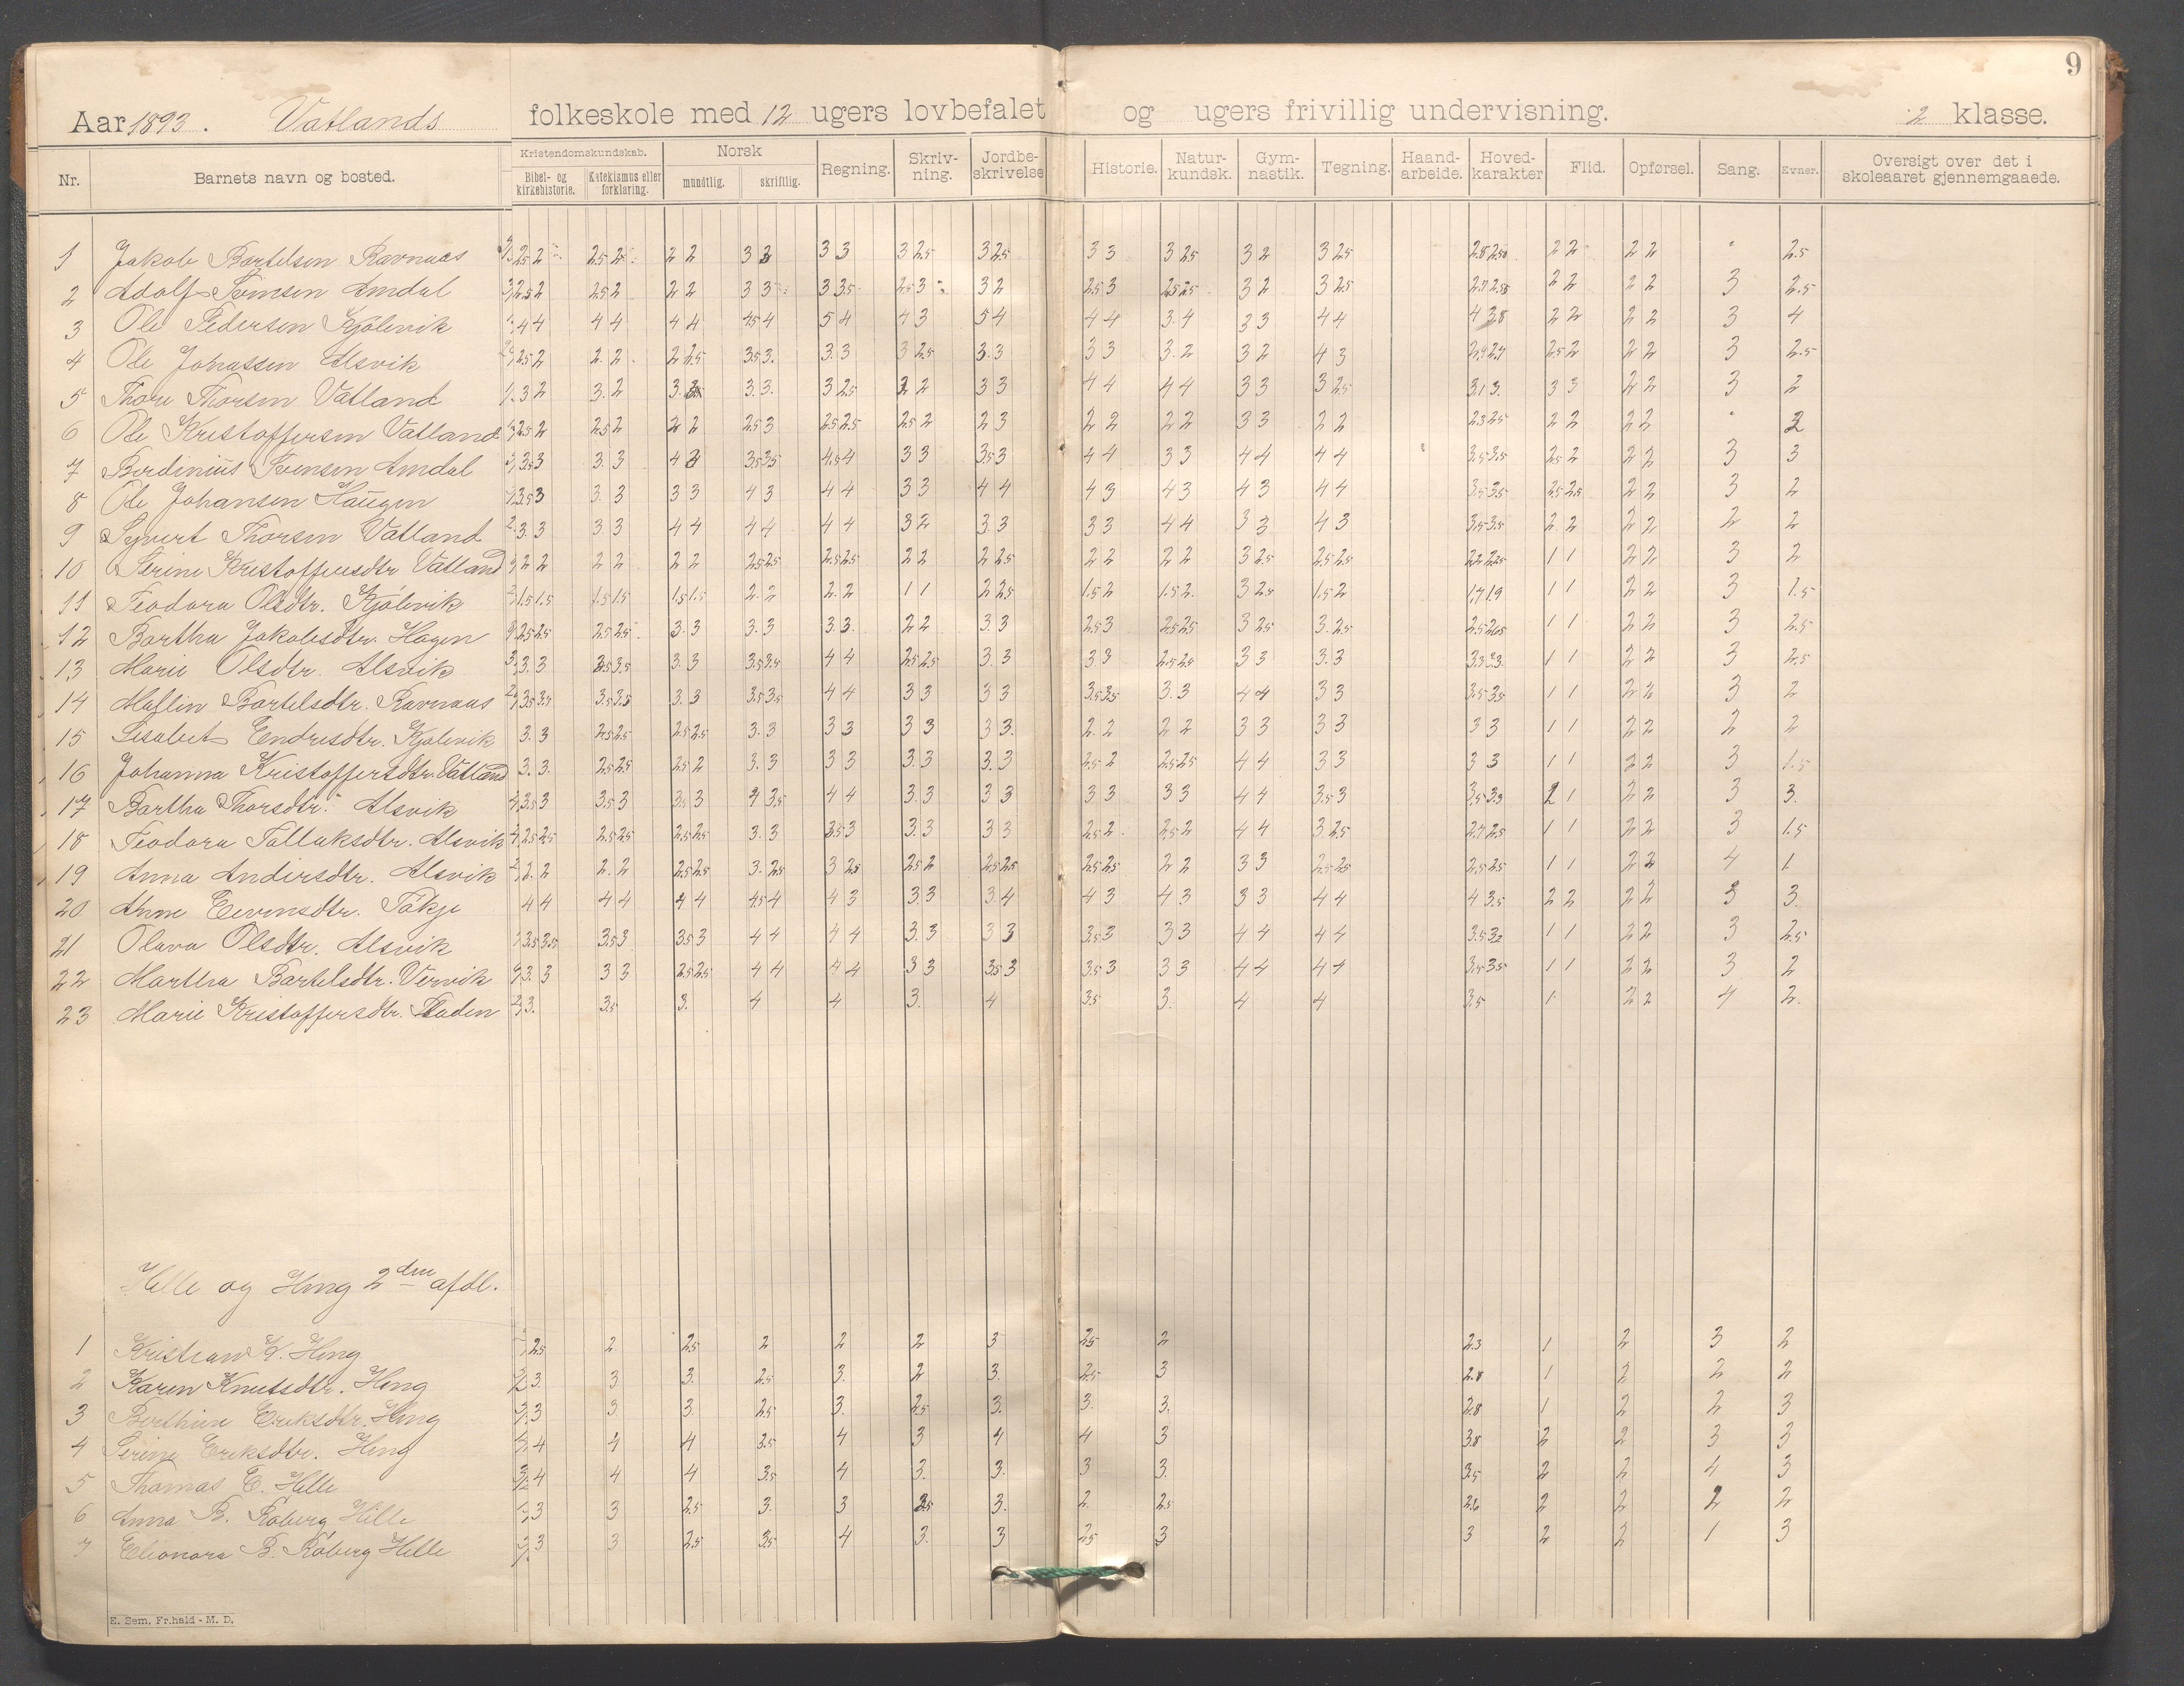 9
Aar 1893. Vatlands folkeskole med 12 ugers lovbefalet og ugers frivillig undervisning. 2 klasse.
Nr. Barnets navn og bosted. Kristendomskundskab. Bibel- og kirkehistorie. Katekismus eller forklaring. Norsk mundtlig. skriftlig. Regning. Skriv-ning. Jordbe-skrivelse Historie. Natur-kundsk. Gym-nastik. Tegning. Haand-arbeide. Hoved-karakter Flid. Opførsel. Sang. Evner. Oversigt over det i skoleaaret gjennemgaaede.
1 Jakob Bartelsen Ravnaas 2.5 2 2.5 2 2 2 3 3 3 3 3 2.5 3 2.5 3 3 3 2.5 3 2 3 2.5 2.8 2.50 2 2 2 2 2.5
2 Adolf Svensen Amdal 2.5 2 2.5 2 2 2 3 3 3 3.5 2.5 3 3 2 2.5 3 2.5 2.5 3 2 3 2.5 2.7 2.58 2 2 2 2 3 2.5
3 Ole Pedersen Kjølevik 4 4 4 4 4 4 4.5 4 5 4 4 3 5 4 4 4 3.4 3 3 4 4 4 3.8 2 2 2 2 3 4
4 Ole Johassen Alsvik 2.5 2 2.2 2 2.5 3.5 3. 3.3 3 2.5 3.3 3 3 3.2 3 2 4 3 2.9 2.7 2.5 2 2 2 3 2.5
5 Thore Thorsen Vatland 3 2 3.2 3. 3.3. 3 2.5 2 2 3 3 4 4 4 4 3 3 3 2.5 3.1 3. 3 3 2 2 3 2
6 Ole Kristoffersen Vatland 2.5 2 2.5 2 2 2 2.5 3 2.5 2.5 2.5 2 2 3 2 2 2 2 3 3 2 2 2.3 2.5 2 2 2 2 2
7 Berdinius Svensen Amdal 3.5 3 3.3 4 3.5 3.5 4.5 4 3 3 3.5 3 4 4 3 3 4 4 4 4 3.5 3.5 2.5 2 2 2 3 3
8 Ole Johansen Haugen 3.5 3 3.3 3 3 4 3 4 4 3 3 4 4 4 3 4 3 4 3 4 4 3.5 3.5 2.5 2.5 2 2 3 2
9 Syvert Thorsen Vatland 3.3 3 3 4 4 4 4 4 4 3 2 3.3 3 3 4 4 3 3 4 3 3.5 3.5 2 2 2 2 2 2
10 Serine Kristoffersdtr Vatland 2 2 2 2 2 2 2.5 2.5 2.5 2.5 2 2 2 2.5 2 2 2 2 3 2.5 2.5 2.5 2.2 2.25 1 1 2 2 3 2
11 Teodora Olsdtr. Kjølevik 1.5 1.5 1.5 1.5 1.5 1.5 2.2 2.2 1 1 2 2.5 1.5 2 1.5 2. 3 2.5 1.5 2 1.7 1.9 1 1 2 2 3 1.5
12 Bartha Jakobsdtr. Hagen 2.5 2.5 2.5 2.5 3.3 3.3 3.3. 2 2 3.3 2.5 3 2.5 2.5 3 2.5 3.2.5 2.5 2.65 1 1 2 2 3 2.5
13 Marie Olsdtr. Alsvik 3.3 3.5 3.3 3.5 3.5 4 4 2.5 2.5 3.3 3 3 2.5 2.5 3 3 3.3 3.3 3.3. 1 1 2 2 3 2.5
14 Mallin Bartelsdtr. Ravnaas 3.5 3.5 3.5 3.5 3.3 3.5 3.5 4 4 3 3 3 3 3.5 3.5 3.3 4 4 3 3 3.5 3.5 1 1 2 2 3 2
15 Lisabet Endresdtr. Kjølevik 3.3 2.5 2.5 2.5 2.5 3.3 3 3 3 3 3 3. 2.2 2 2 3 3 3 3 3 3 1 1 2 2 2 2
16 Johanna Kristoffersdtr. Vatland 3.3. 2.5 2.5 2.5 2 3.3 3 3 3.3 3.3 2.5 2 2.5 2.5 4 4 3 3 3 3 1 1 2 2 3 1.5
17 Bartha Thorsdtr. Alsvik 3.5 3 3.5 3 3.5 3 4 3.5 4 4 3.3 3 3 3 3 3 3 4 4 3.5 3 3.5 3.3 2 1 2 2 3 3.
18 Teodora Tallaksdtr. Alsvik 2.5 2.5 2.5 2.5 2.5 2.5 3.3 3.5 3 3.3 3 3 2.5 2. 2.5 2 4 4 3 2.5 2.7 2.5 1 1 2 2 3 1.5
19 Anna Andersdtr. Alsvik 2.2 2.2 2.5 2.5 3. 2.5 3 2.5 2.5 2 2.5 2.5 2.5 2.5 2 2 3 3 2.5 2.5 2.5 2.5 1 1 2 2 4 1
20 Anne Eevensdtr. Tøkje 4 4 4 4 4 4 4.5 4 4 3 3.3 3.4 4 3 4 3 3 3 4 4 4 3.5 2 2 2 2 3 3.
21 Olava Olsdtr. Alsvik 3.5 3.5 3.5 3 3.5 3 4 4 4 4 3.3 3 3 3.5 3 3 3 4 4 4 4 3.5 3.2 1 1 2 2 3 2.5
22 Martha Bartelsdtr. Vervik 3.3 3 3 2.5 2.5 4 4 4 4 3 3 3.5 3 3.5 3 3 3 4 4 4 4 3.5 3.5 1 1 2 2 3 2
23 Marie Kristoffersdtr. 3. 3.5 3. 4 4 3. 4 3.5 3. 4 4 3.5 1 2 2 4 2.
Helle og Heng 2den afdl.
1 Kristian K. Heng 2.5 2. 2.5 2 2 2 3 2.5 2 2.3 1 2 3 2
2 Karen Knutsdtr. Heng 3. 3 3. 2.5 3. 2 3. 2.5 3 2.8 1 2 2 2
3 Berthine Eriksdtr. Heng 3 3 3. 2.5 3. 2.5 3. 3. 3. 2.8 1 2 2 3
4 Serine Eriksdtr. Heng 4 4 4 3.5 4 3 4 4 3 3.8 2 2 3 3
5 Thomas E. Helle 4 4 4 3.5 4 3. 3. 3 3. 3.5 2 2 4 3
6 Anna B. Røberg Helle 3 3 2.5 3. 3 2.5 3. 2. 2.5 2.6 2 2 2 2
7 Elionora B. Røberg Helle 3 3 2.5 3.5 4 3. 3 2.5 3 3 2 2 1 3
E. Sem. Fr.hald - M. D.